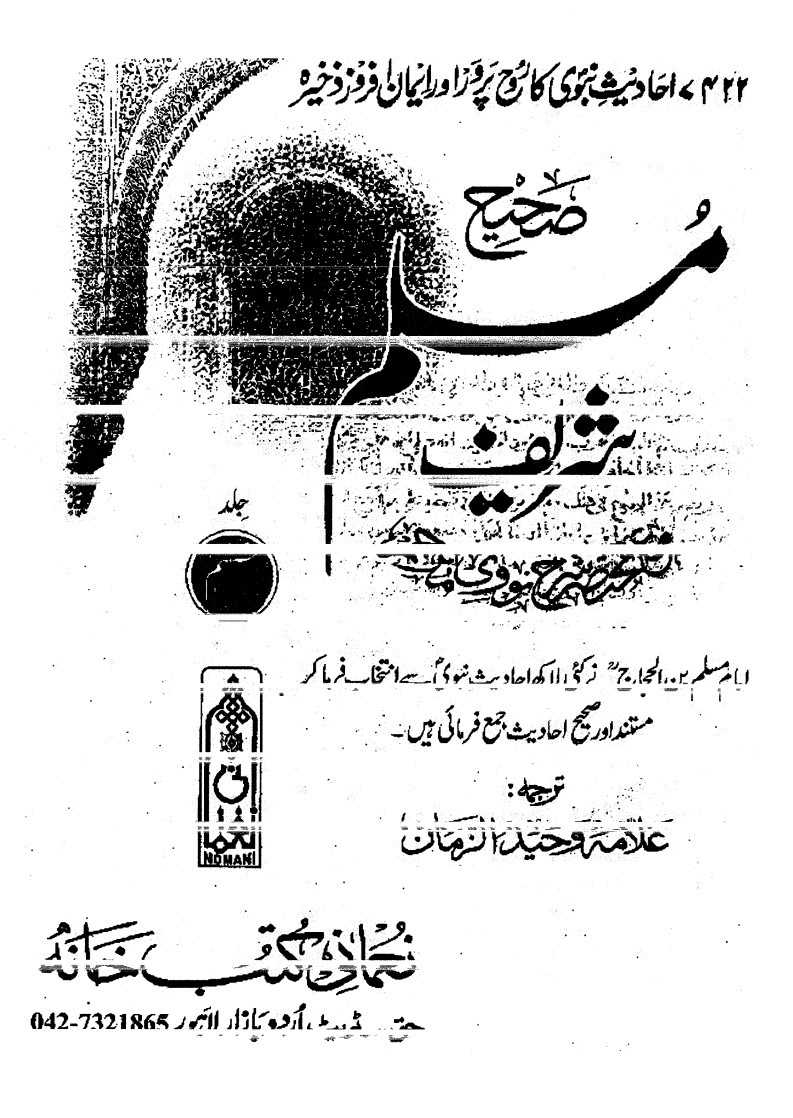 ۷۴۲۲ احادیثِ نبوی کا رُوح پرور اور ایمان افروز ذخیرہ
صحیح
مُسلم
شریف
جلد
مختصر شرح نووی
امام مسلم بن الحجاجؒ نے کئی لاکھ احادیث نبویؐ سے انتخاب فرما کر
مستند اور صحیح احادیث جمع فرمائی ہیں۔
ترجمہ:
علامہ وحید الزمان
نعمانی
NOMANI
نعمانی کتب خانہ
حق سٹریٹ اُردو بازار لاہور 042-7321865